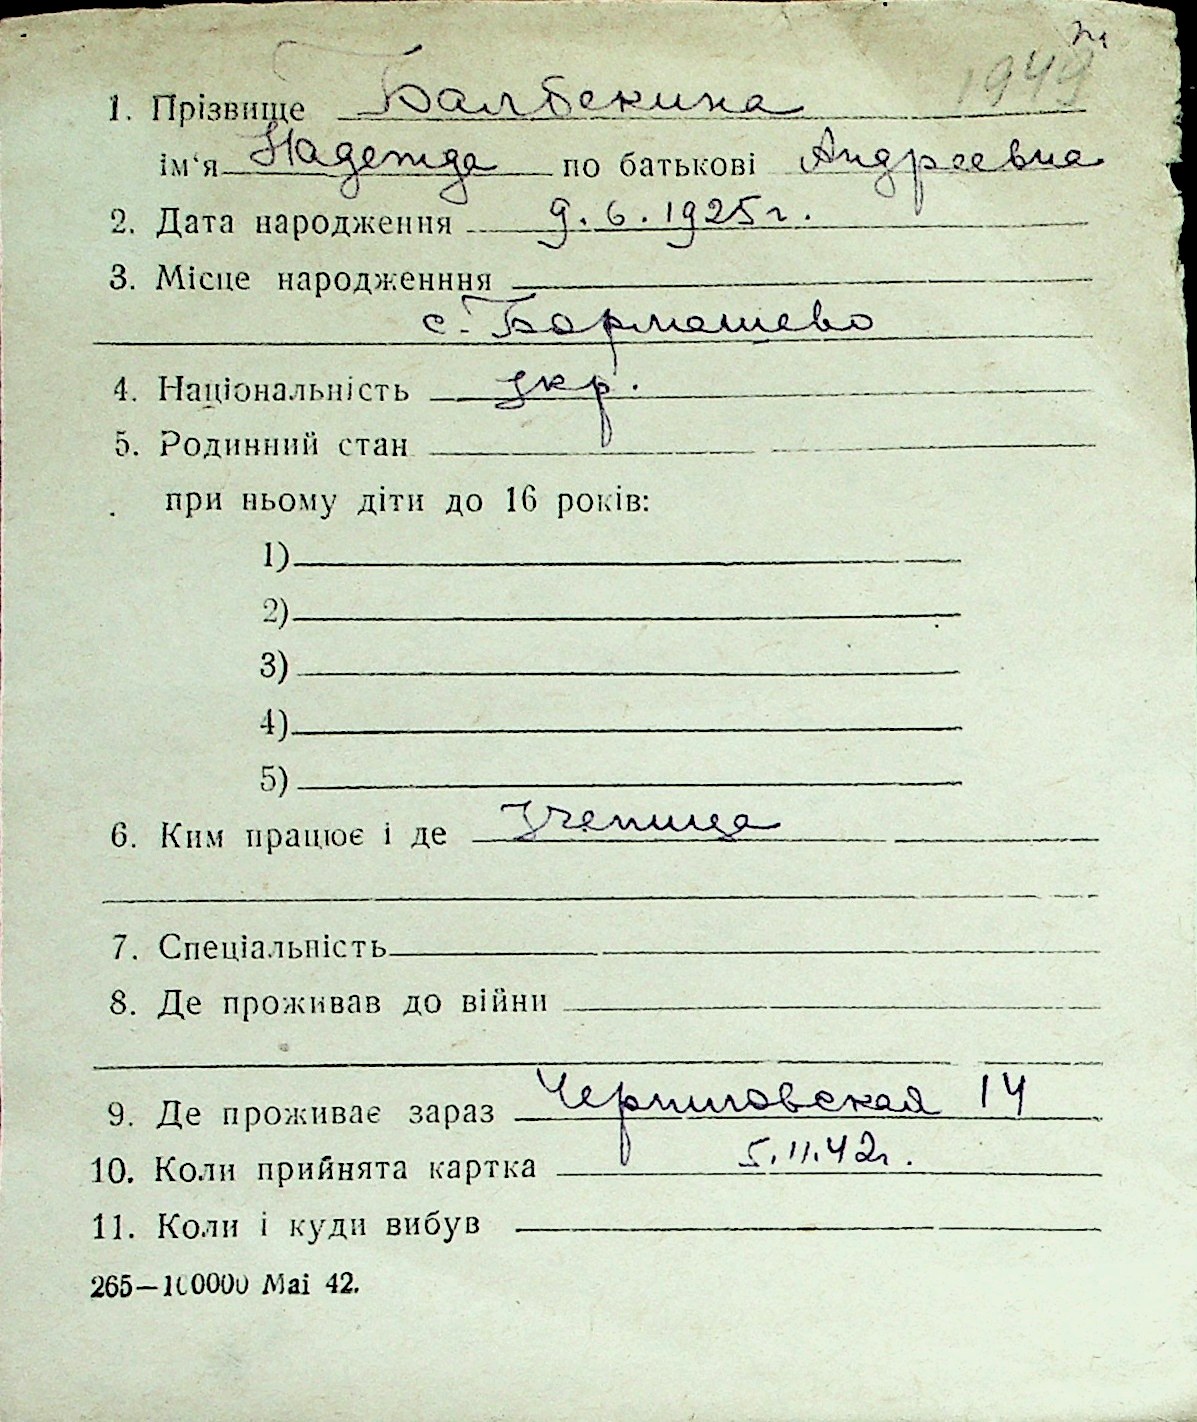 1949
1. Прізвище Балбекина
ім‘я Надежда по батькові Андреевна
2. Дата народження 9.6.1925г.
3. Місце народженння
с. Бармашево
4. Національність укр.
5. Родинний стан
при ньому діти до 16 років:
1)
2)
3)
4)
5)
6. Ким працює і де Ученица
7. Спеціальність
8. Де проживав до війни
9. Де проживає зараз Черниговская 14
10. Коли прийнята картка 5.11.42г.
11. Коли і куди вибув
265—100000 Mai 42.